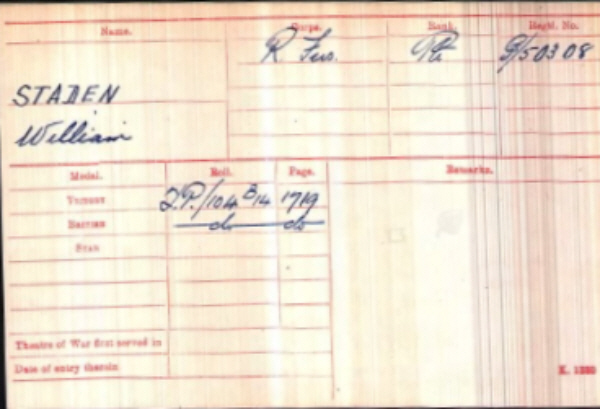 Name. Corps. Rank. Regtl. No.
R Fus. Pte G/50308
STADEN
William
Medal. Roll. Page. Remarks.
VICTORY T.P./104 B14 1719
BRITISH do do
STAR
Theatre of War first served in
Date of entry therein
K. 1380